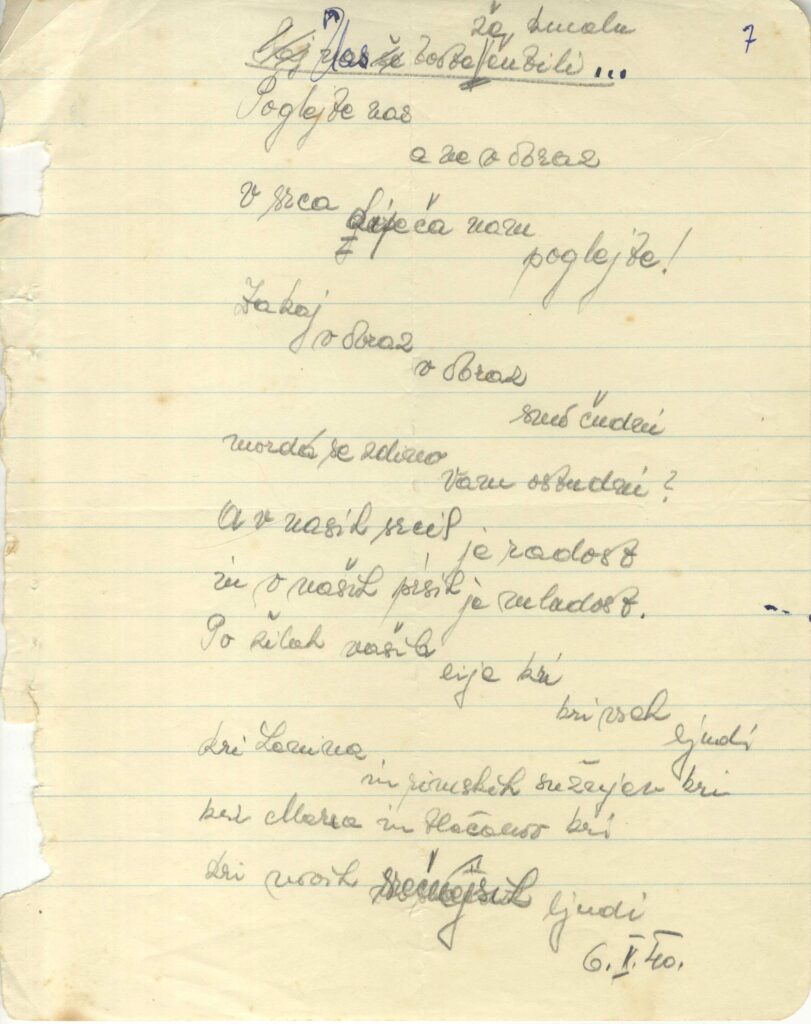 že, kmalu
7
nas boste čutili ...
Poglejte nas
a ne v obraz
v srca
žáreča nam
poglejte!
Zakaj
v obraz
v obraz
smo čudni
morda se zdimo
Vam ostudni?
A v naših srcih
je radost
in v naših prsih
je mladost.
Po žilah naših
lije kri
kri vseh
ljudi
kri Lenina
in rimskih sužnjev kri
kri Marxa in tlačanov kri
kri vseh
ljudi
6. X. 40.